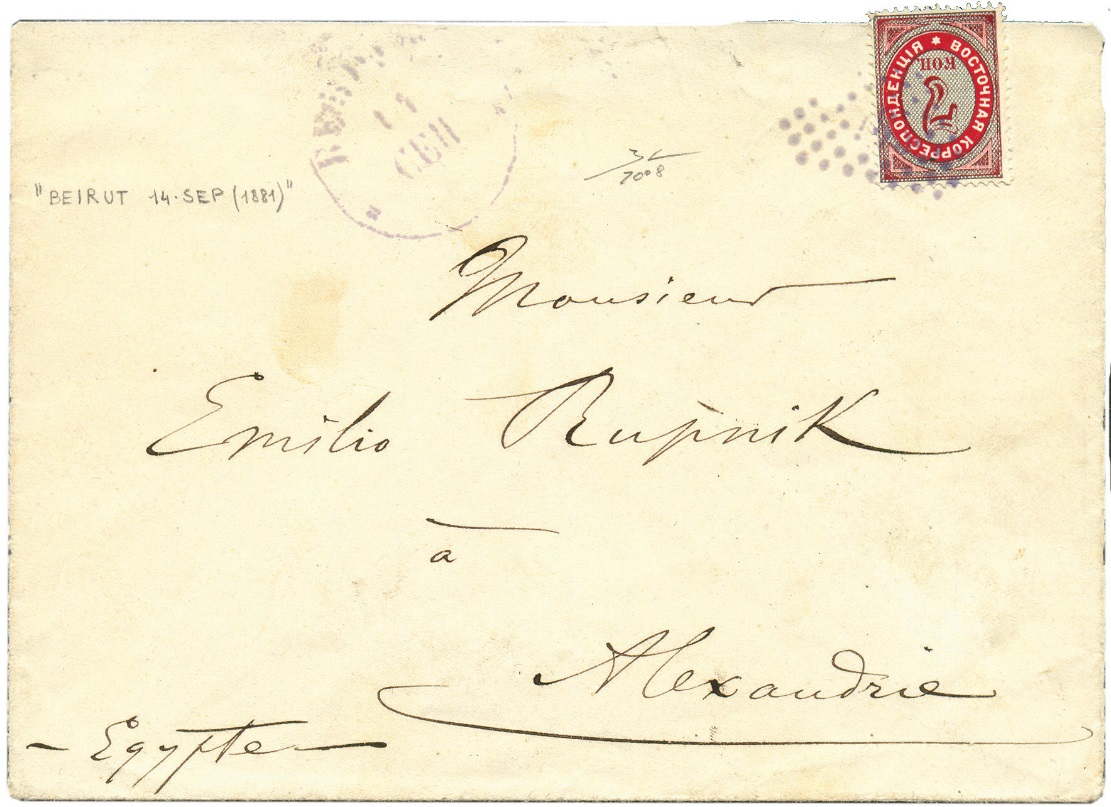 ВОСТОЧНАЯ КОРРЕСПОНДЕНЦІЯ
7
КОП
СЕП
"BEIRUT 14.SEP (1881)"
Monsieur
Emilio Rupnik
à
Alexandrie
- Egypte -